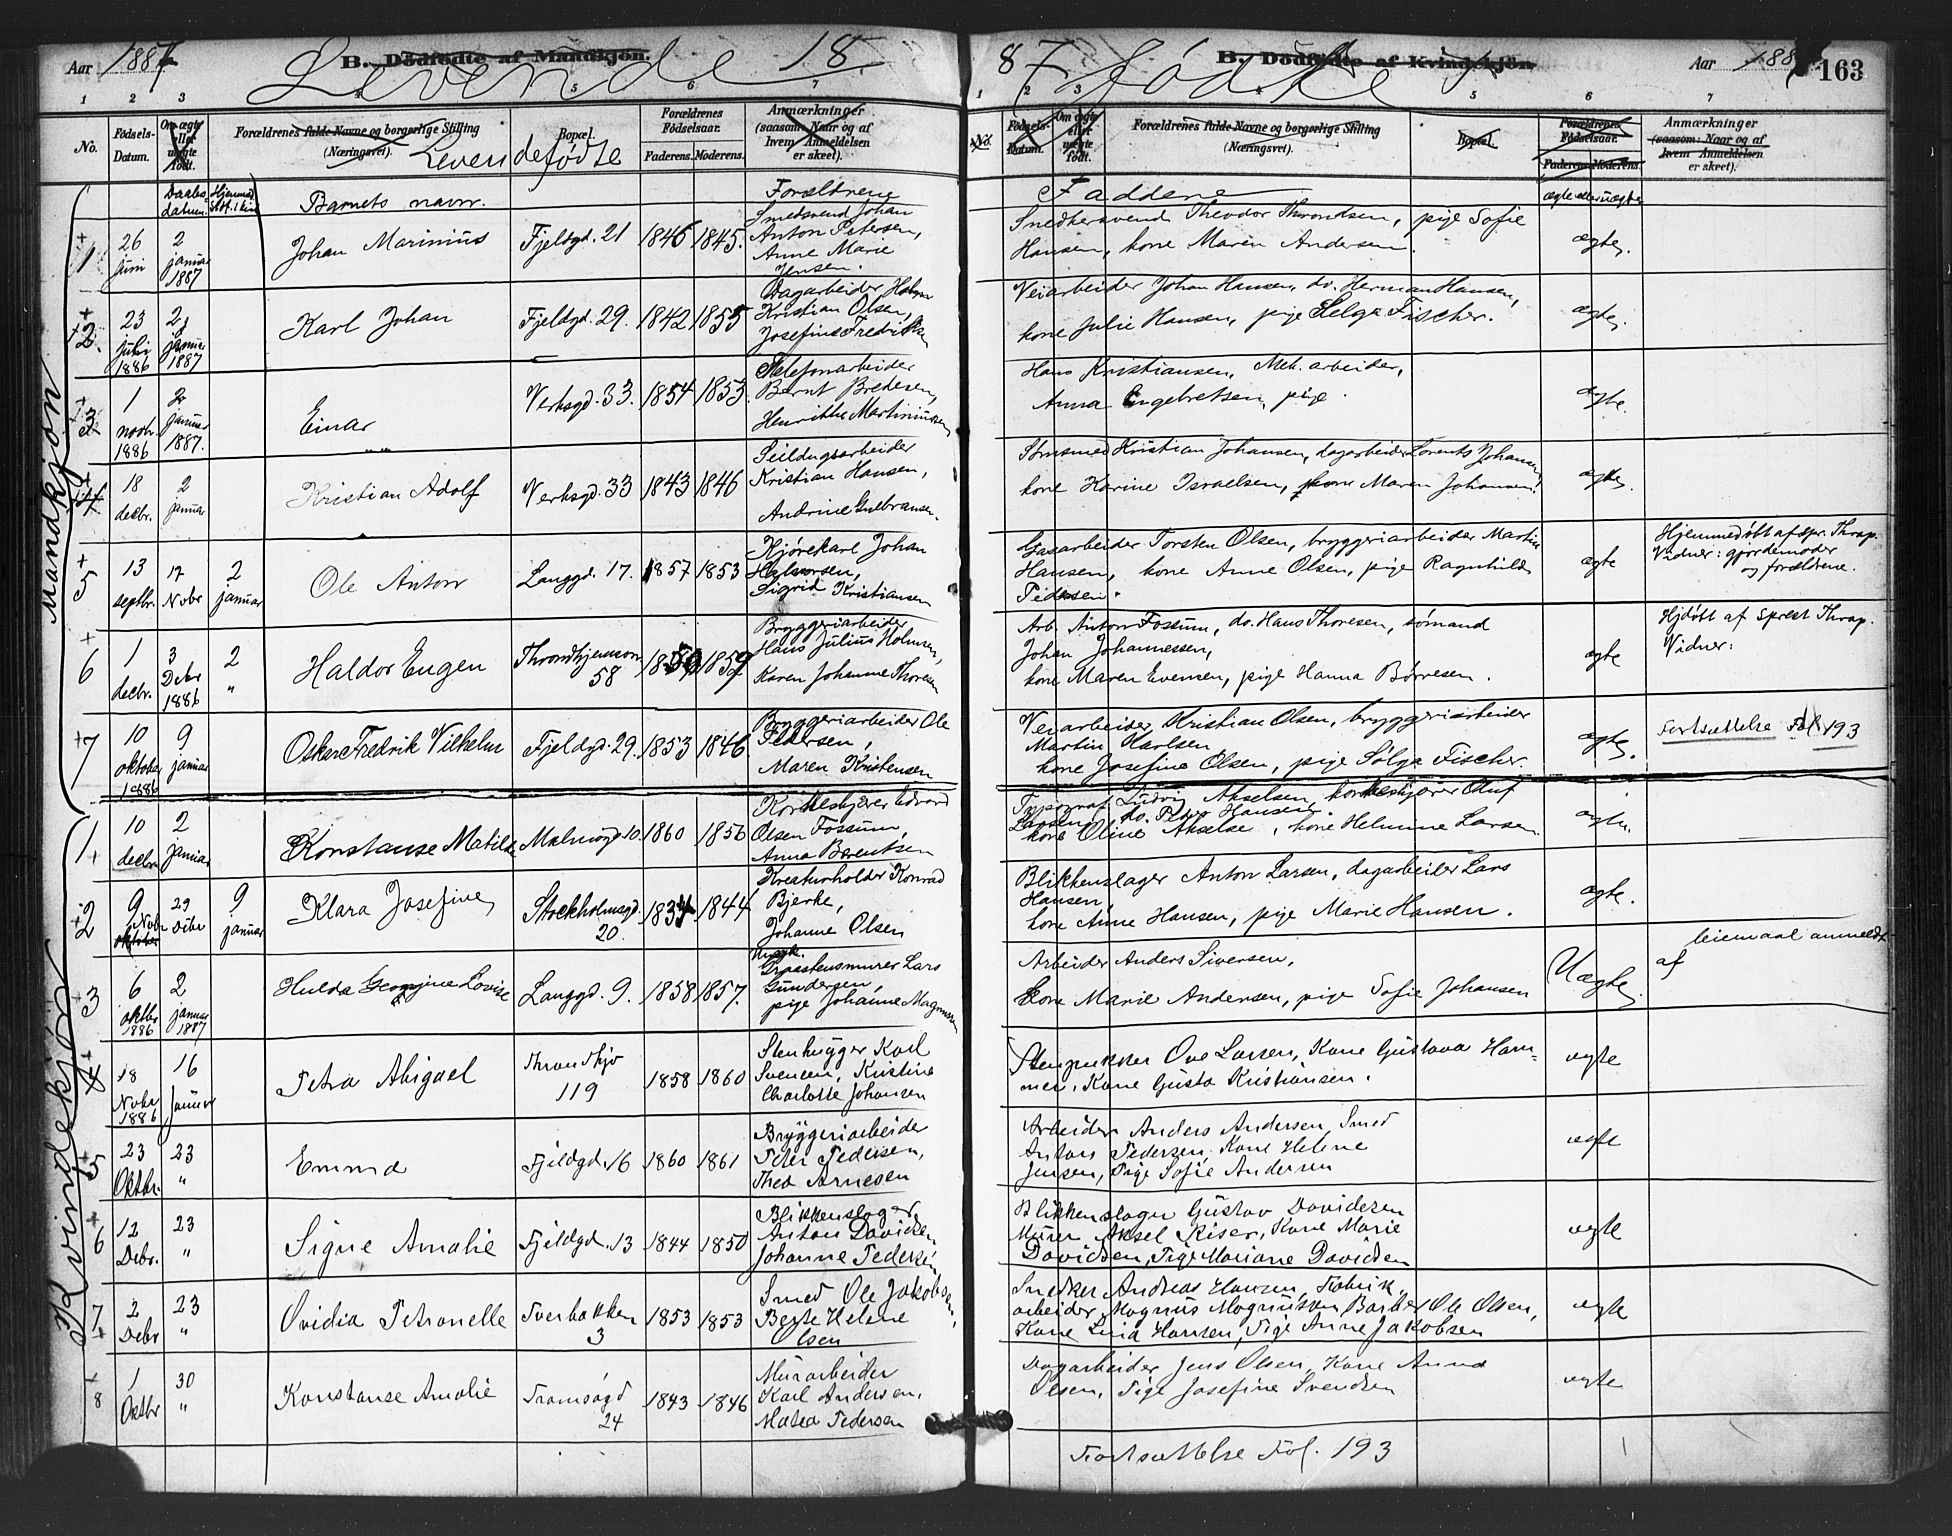 Aar 1887
B. Dödfødte af Mandkjön.
Levende 18
87 Fødte
B. Dödfødte af Kvindekjön
Aar 188
163
1 2 3 4 5 6 7
1 2 3 4 5 6 7
No.
Födsels-Datum.
Om ægte eller uægte födt.
Forældrenes fulde Navne og borgerlige Stilling
(Næringsvei).
Levendefødte
Bopæl.
Forældrenes Födselsaar.
Faderens. Moderens.
Anmærkninger
(saasom: Naar og af
hvem Anmeldelsen
er skeet).
No.
Födsels-Datum.
Om ægte eller uægte födt.
Forældrenes fulde Navne og borgerlige Stilling
(Næringsvei).
Bopæl.
Forældrenes Födselsaar.
Faderens Moderens.
Anmærkninger
(saasom: Naar og af
hvem Anmeldelsen
er skeet).
Daabsdatum.
Barnets navn.
Forældrene
Faddene
ægte eller uægte
Mandkjøn
1
26 Juni
2 januar 1887
Johan Marinius
Fjeldgd. 21
1846 1845.
Smedsvend Johan
Anton Petersen,
Anne Marie
Jensen.
Snedkersvend Theodor Throndsen, pige Sofie
Hansen, kone Maren Andersen.
ægte.
2
23 Juli 1886
2 januar 1887
Karl Johan
Fjeldgd. 29.
1842 1855
Dagarbeider
Kristian Olsen,
Josefine Fredriksen
Veiarbeider Johan Hansen, do. Herman Hansen,
kone Julie Hansen, pige Helga Fischer.
ægte.
3
1 novbr. 1886
januar 1887.
Einar
Verksgd. 33.
1854 1853
Telefonarbeider
Bernt Bredesen,
Henrikke Martiniussen
Hans Kristiansen, Mek. arbeider,
Anna Engebretsen, pige.
ægte.
4
18 decbr.
2 januar
Kristian Adolf
Verksgd. 33
1843 1846
Seildugsarbeider
Kristian Hansen,
Andrine Gulbransen.
Kristian Johansen, dagarbeider Lorents Johansen
kone Karine Israelsen, kone Maren Johansen.
ægte.
5
13 septbr.
17 Novbr
2 januar
Ole Anton
Langgd. 17.
1857 1853
Kjørekarl Johan
Halvorsen,
Sigrid Kristiansen
Gasarbeider Torsten Olsen, bryggeriarbeider Martin
Hansen, kone Anne Olsen, pige Ragnhild
Pedersen.
ægte
Hjemmedøbt af spr. Thrap.
Vidner: gjordemoder
og forældrene.
6
1 decbr.
3 Debr 1886
2 "
Haldor Eugen
Throndhjemsvn
58
1859
Bryggeriarbeider
Hans Julius Holmen,
Karen Johanne Thoresen
Arb. Anton Fossum, do. Hans Thoresen, sømand
Johan Johannessen,
kone Maren Evensen, pige Hanna Børresen.
ægte
Hjdøbt af sprest Thrap.
Vidner:
7
10 oktober 1886
9 januar
Oskar Fredrik Vilhelm
Fjeldgd. 29.
1853 1846
Bryggeriarbeider Ole
Pedersen,
Maren Kristensen
Veiarbeider Kristian Olsen, bryggeriarbeider
Martin Karlsen
kone Josefine Olsen, pige Sølga Fischer.
ægte.
Fortsættelse Fol. 193
Kvindekjøn
1
10 decbr
2 januar
Konstanse Matilde
Malmøgd 10.
1860 1856
Korkeskjærer Edvard
Olsen Fossum,
Anna Berentsen
Typograf Ludvig Akselsen, korkeskjærer Oluf
Larsen, do. Peter Hansen
kone Oline Akselse, kone Helmine Larsen
ægte.
2
9 Novbr
29 Debr
9 januar
Klara Josefine
Stockholmsgd.
20.
1834 1844
Kreaturholder Konrad
Bjerke,
Johanne Olsen
Blikkenslager Anton Larsen, dagarbeider Lars
Hansen,
kone Anne Hansen, pige Marie Hansen.
ægte.
3
6 oktbr 1886
2 januar 1887
Hulda Georgine Lovise
Langgd. 9.
1858 1857.
Ungk.
Graastensmurer Lars
Gundersen,
pige Johanne Magnussen
Arbeider Anders Siversen,
kone Marie Andersen, pige Sofie Johansen
Uægte.
leiemaal anmeldt
af
4
18 Novbr 1886
16 Januar
Petra Abigael
Throndhjv
119
1858 1860
Stenhugger Karl
Svensen, Kristine
Charlotte Johansen
Stenpukker Ove Larsen, Kone Gustava Ham-
mer, Kone Gusta Kristiansen.
ægte
5
23 Oktbr.
23 "
Emma
Fjeldgd. 16
1860 1861
Bryggeriarbeider
Peter Pedersen,
Thea Arnesen
Arbeider Anders Andersen, Smed
Anton Pedersen, Kone Helene
Jensen, Pige Sofie Andersen
ægte
6
12 Debr.
23 "
Signe Amalie
Fjeldgd. 13
1844 1850
Blikkenslager
Anton Davidsen
Johanne Pedersen
Blikkenslager Gustav Davidsen
Murer Aksel Riser, Kone Marie
Davidsen, Pige Mariane Davidsen
ægte
7
2 Debr
23 "
Ovidia Petronelle
Tverbakken
3
1853 1853
Smed Ole Jakobsen,
Berte Helene
Olsen
Snedker Andreas Hansen, Fabrik
arbeider Magnus Magnussen, Barber Ole Olsen,
Kone Lina Hansen, Pige Anne Jakobsen
ægte
8
1 Oktbr
30 "
Konstanse Amalie
Tromsøgd
24
1843 1846
Murarbeider
Karl Andersen,
Matea Pedersen
Dagarbeider Jens Olsen, Kone Anna
Olsen, Pige Josefine Svendsen
ægte
Fortsættelse Fol. 193